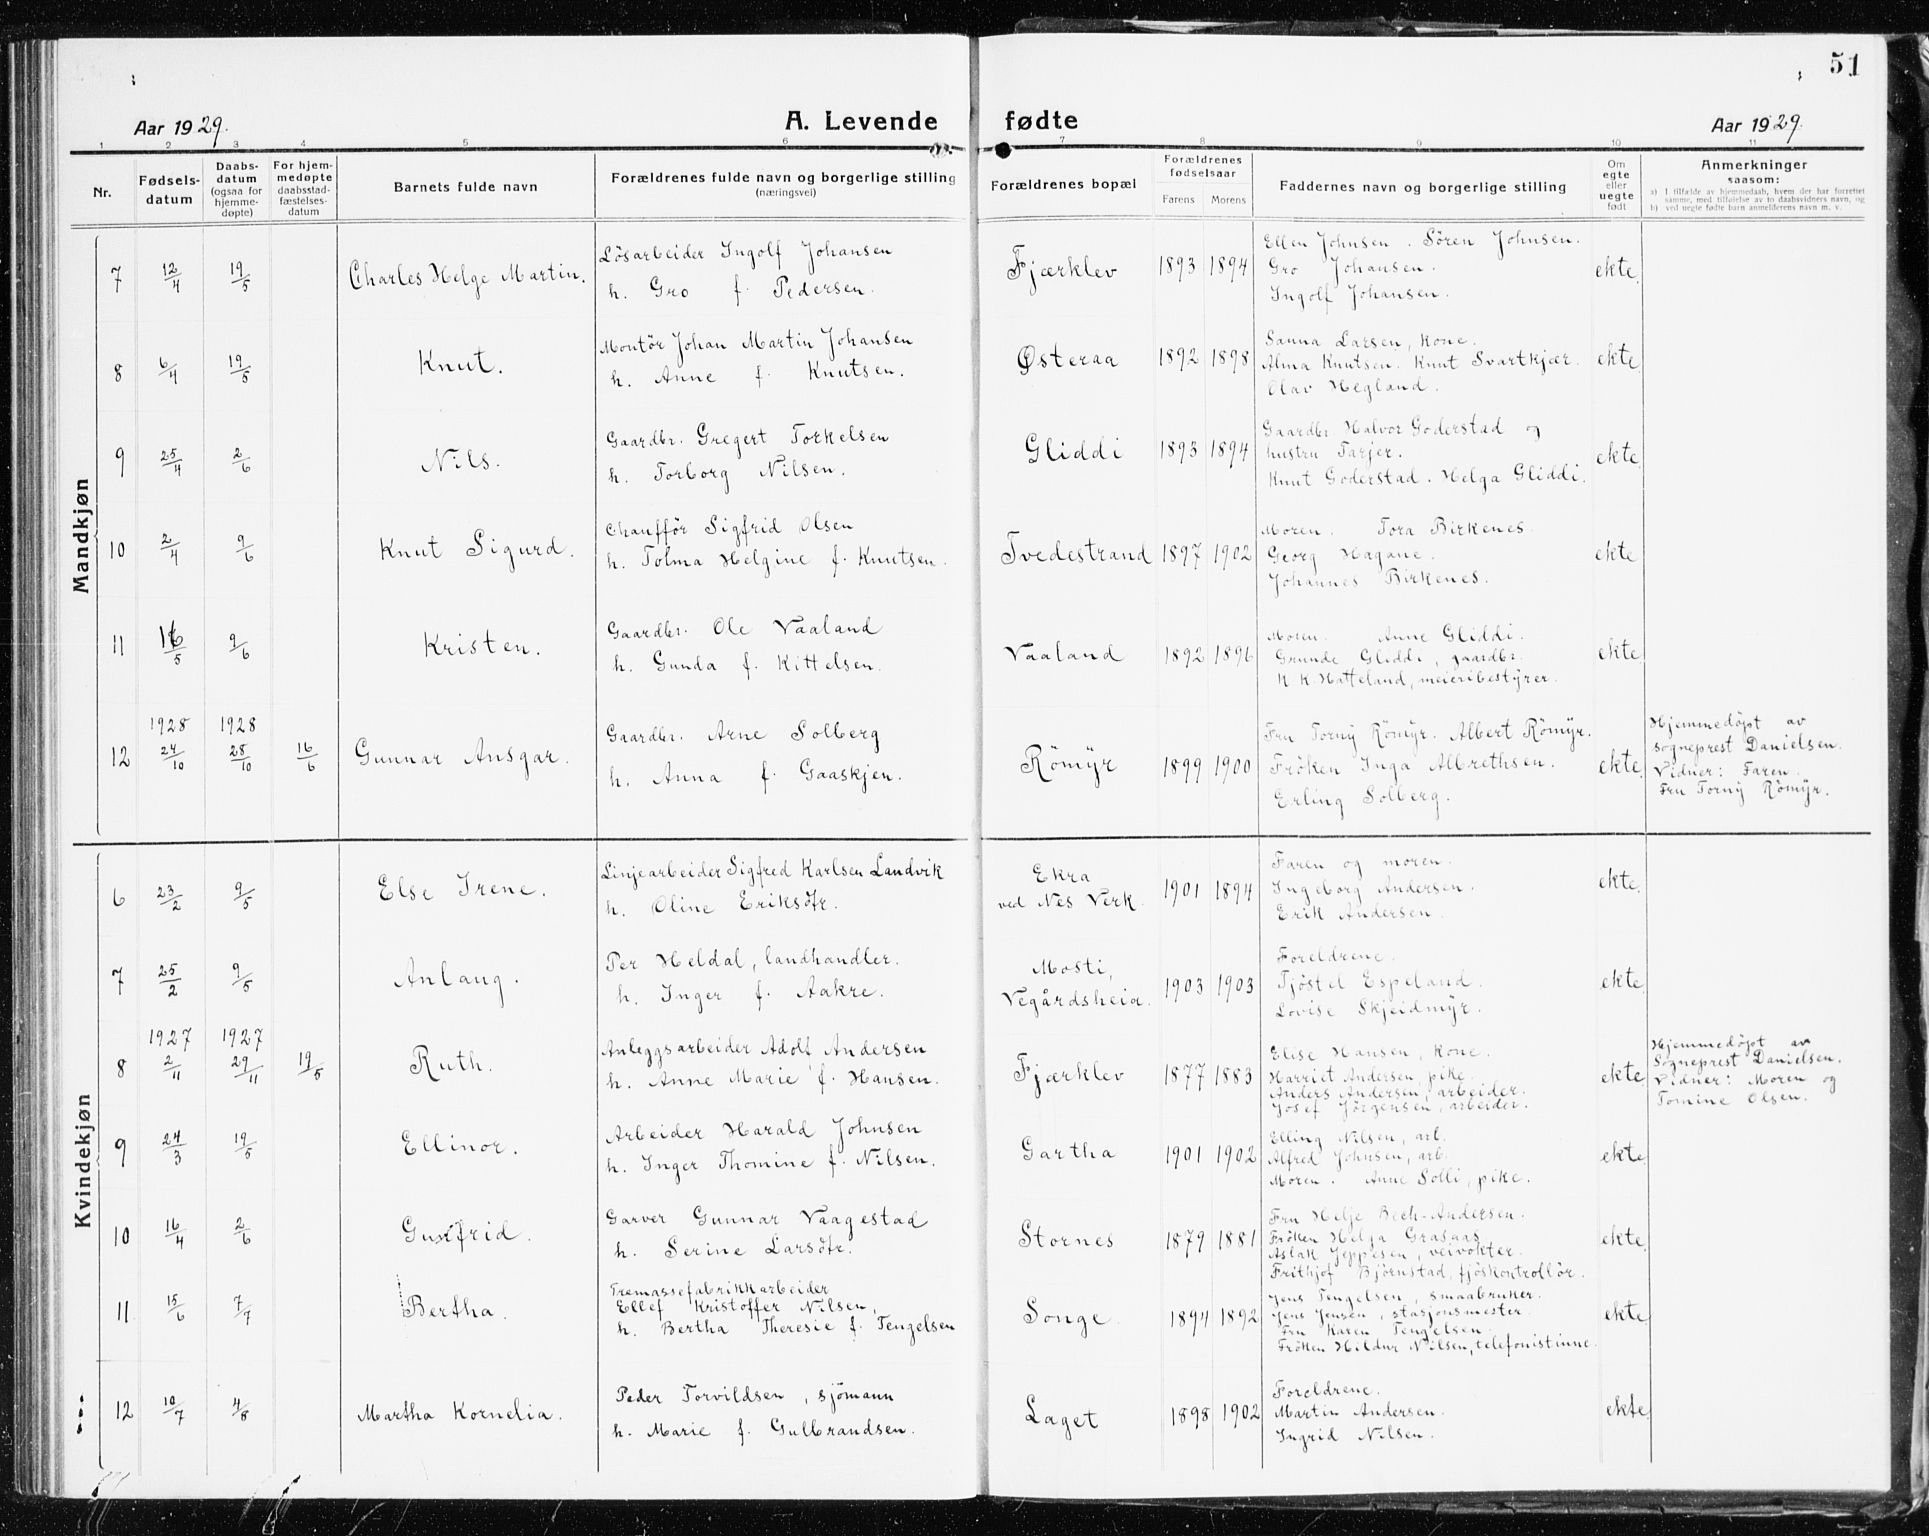 51
Aar 1929.
A. Levende fødte
Aar 1929.
1 2 3 4 5 6 7 8 9 10 11
Nr.
Fødsels-
datum
Daabs-
datum
(ogsaa for
hjemme-
døpte)
For hjem-
medøpte
daabsstad-
fæstelses-
datum
Barnets fulde navn
Forældrenes fulde navn og borgerlige stilling
(næringsvei)
Forældrenes bopæl
Forældrenes
fødselsaar
Farens Morens
Faddernes navn og borgerlige stilling
Om
egte
eller
uegte
født
Anmerkninger
saasom:
a) I tilfælde av hjemmedaab, hvem der har forrettet
samme, med tilføielse av to daabsvidners navn, og
b) ved uegte fødte barn anmelderens navn m. v.
Mandkjøn
7 12/4 19/5 Charles Helge Martin.
Løsarbeider Ingolf Johansen
h. Gro f. Pedersen.
Fjærklev 1893 1894
Ellen Johnsen. Sören Johnsen.
Gro Johansen.
Ingolf Johansen.
ekte.
8 6/4 19/5 Knut.
Montör Johan Martin Johansen
h. Anne f. Knutsen.
Østeraa 1892 1898
Sanna Larsen, kone.
Alma Knutsen. Knut Svartkjær.
Olav Hegland.
ekte.
9 25/4 2/6 Nils.
Gaardbr. Gregert Torkelsen
h. Torborg Nilsen.
Gliddi 1893 1894
Gaardbr. Halvor Goderstad og
hustru Tarjer.
Knut Goderstad. Helga Gliddi.
ekte.
10 2/4 9/6 Knut Sigurd.
Chaufför Sigfrid Olsen
h. Tolma Helgine f. Knutsen.
Tvedestrand 1897 1902
Moren. Tora Birkenes.
Georg Hagane.
Johannes Birkenes.
ekte
11 16/5 9/6 Kristen.
Gaardbr. Ole Vaaland
h. Gunda f. Kittelsen.
Vaaland 1892 1896
Moren. Anne Gliddi.
Grunde Gliddi, gaardbr.
K. K. Hatteland, meieribestyrer.
ekte.
1928 1928
12 24/10 28/10 16/6 Gunnar Ansgar.
Gaardbr. Arne Solberg
h. Anna f. Gaaskjen.
Römyr 1899 1900
Fru Torny Römyr. Albert Römyr.
Fröken Inga Albrethsen.
Erling Solberg.
ekte.
Hjemmedöpt av
sogneprest Danielsen.
Vidner: Faren.
Fru Torny Römyr.
Kvindekjøn
6 23/2 9/5 Else Irene.
Linjearbeider Sigfred Karlsen Landvik
h. Oline Eriksdtr.
Ekra
ved Nes Verk. 1901 1894
Faren og moren.
Ingeborg Andersen.
Erik Andersen.
ekte.
7 25/2 9/5 Anlaug.
Per Heldal, landhandler.
h. Inger f. Aakre.
Mosti,
Vegårdsheia. 1903 1903
Foreldrene.
Tjöstel Espeland.
Lovise Skjeidmyr.
ekte.
1927 1927
8 2/11 29/11 19/5 Ruth.
Anleggsarbeider Adolf Andersen
h. Anne Marie f. Hansen.
Fjærklev 1877 1883
Elise Hansen, kone.
Harriet Andersen, pike.
Anders Andersen, arbeider.
Josef Jörgensen, arbeider.
ekte
Hjemmedöpt av
Sogneprest Danielsen.
Vidner: Moren og
Tomine Olsen.
9 24/3 19/5 Ellinor.
Arbeider Harald Johnsen
h. Inger Thomine f. Nilsen.
Gartha 1901 1902
Elling Nilsen, arb.
Alfred Johnsen, arb.
Moren. Anne Solli, pike.
ekte.
10 16/4 2/6
Garver Gunnar Vaagestad
h. Serine Larsdtr.
Stornes 1879 1881
Fru Helje Bech-Andersen.
Fröken Helga Grasaas,
Aslak Jeppesen, veivokter.
Frithjof Björnstad, fjöskontrollör.
ekte.
11 15/6 7/7 Bertha.
Tremassefabrikkarbeider
Ellef Kristoffer Nilsen,
h. Bertha Theresie f. Tengelsen
Songe. 1894 1892
Jens Tengelsen, smaabruker.
Jens Jensen, stasjonsmester.
Fru Karen Tengelsen.
Fröken Hildur Nilsen, telefonistinne.
ekte.
12 10/7 4/8 Martha Kornelia.
Peder Torvildsen, sjömann
h. Marie f. Gulbrandsen.
Laget 1898 1902
Foreldrene.
Martin Andersen.
Ingrid Nilsen.
ekte.